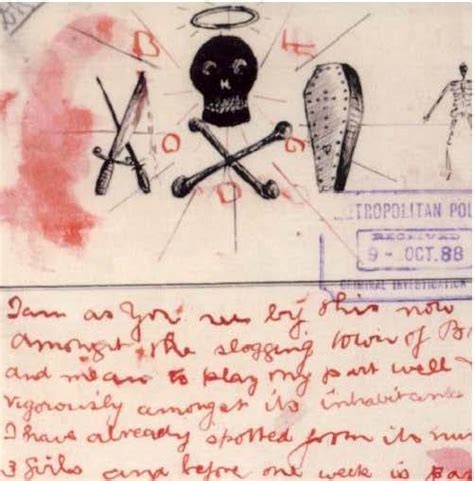 B F
O G
D
ETROPOLITAN POL
RECEIVED
9 - OCT. 88
CRIMINAL INVESTIGATION
I am as You see by this now
amongst the slogging town of B
and mean to play my part well
vigorously amongst its inhabitants
I have already spotted from its
3 girls and before one week is pas